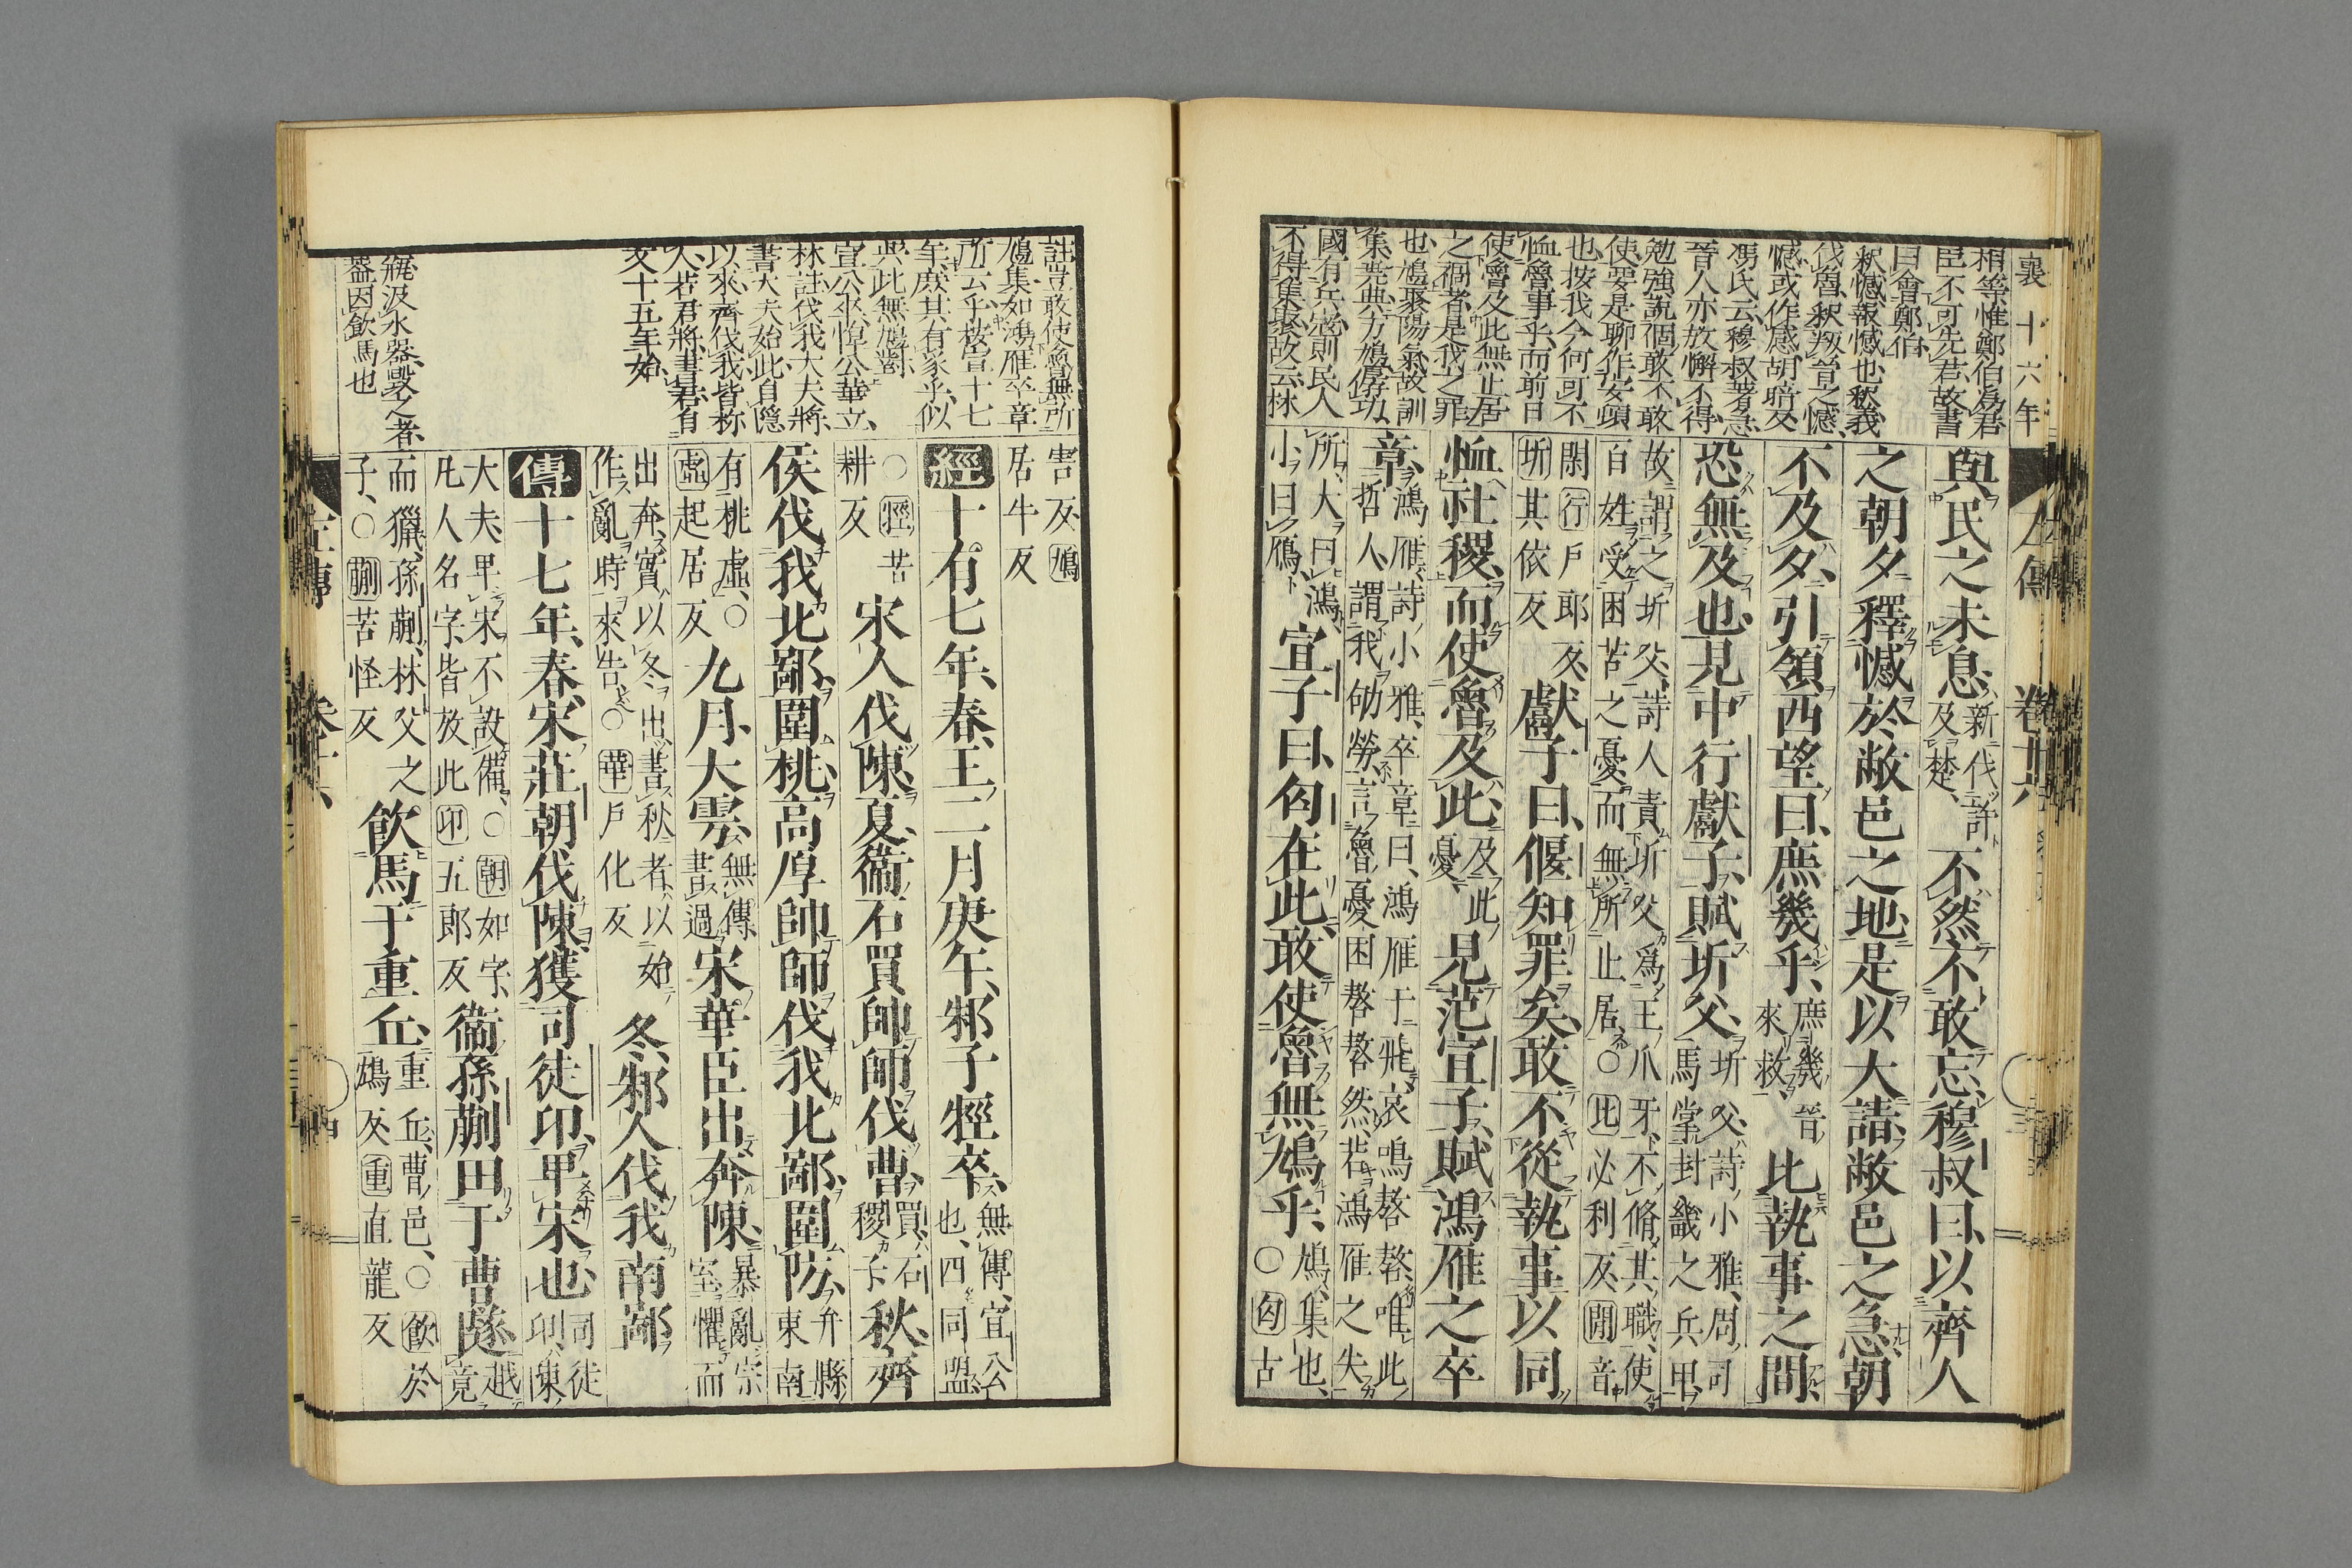 襄十六年
左傳
卷十六
相等、惟鄭伯爲君
臣、不可先君、故書
曰會鄭伯
釈憾、報憾也、釈義
伐魯釈叛晉之憾、
憾或作感、胡暗反
馮氏云、穆叔蓍急
晉人亦故懈不得
勉強說個敢不敢
使、要是聊作安頓
也、按我今何可不
恤魯事乎、而前日
使魯及此無止居
之禍者、是我之罪
也、鳩聚陽氣、故訓
集、堯典方鳩僝功、
國有兵寇、則民人
不得集聚、故云、林
與民之未息、新伐許
及楚、不然不敢忘、穆叔曰、以齊人
之朝夕釋憾於敝邑之地、是以大請、敝邑之急、朝
不及夕、引領西望曰、庶幾乎、庶幾晉
來救、比執事之間、
恐無及也、見中行獻子、賦圻父、圻父、詩小雅、周司
馬掌封畿之兵甲、
故謂之圻父、詩人責圻父爲王爪牙、不脩其職、使
百姓受困苦之憂、而無所止居、○比必利反、閒音
閑、行戶郎反、
圻其依反、獻子曰、偃知罪矣、敢不從執事以同
恤社稷、而使魯及此、及此
憂、見范宣子、賦鴻雁之卒
章、鴻雁、詩小雅、卒章曰、鴻雁于飛、哀鳴嗸嗸、唯此
哲人、謂我劬勞、言魯憂困嗸嗸然、若鴻雁之失
所、大曰鴻、
小曰雁、宣子曰、匄在此、敢使魯無鳩乎、鳩、集也、
○匄古
註豈敢使魯無所
鳩集如鴻雁卒章
所云乎、按宣十七
年、庶其有豸乎、似
與此無鳩對、
宣公卒、悼公華立、
林註、伐我大夫將、
書大夫始此、自隱
以來、齊伐我皆称
人、若君將、書君、有
文十五年始、
瓶、汲水器、毀之者、
蓋因飲馬也
害反、鳩
居牛反
經十有七年、春、王二月庚午、邾子牼卒、無傳、宣公
也、四同盟、
○牼苦
耕反、宋人伐陳、夏、衞石買帥師伐曹、買、石
稷子、秋、齊
侯伐我北鄙、圍桃、高厚帥師伐我北鄙、圍防、弁縣
東南
有桃虛、○
虛起居反、九月、大雩、無傳、
書過、宋華臣出奔陳、暴亂宗
室、懼而
出奔、實以冬出、書秋者、以始
作亂時來告、○華戶化反、冬、邾人伐我南鄙、
傳十七年、春、宋莊朝伐陳、獲司徒卬、卑宋也、司徒
卬、陳
大夫、卑宋不設備、○朝如字、
凡人名字皆放此、卬五郎反、衞孫蒯田于曹隧、越
竟
而獵、孫蒯、林父之
子、○蒯苦怪反、飲馬于重丘、重丘、曹邑、○飲於
鴆反、重直龍反
左傳
卷十六